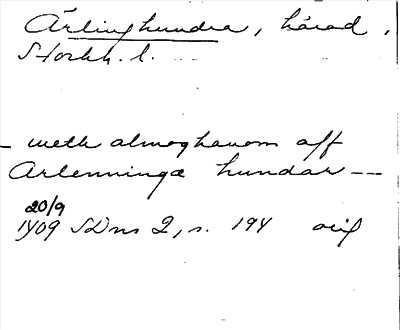 Ärlinghundra, härad,
Stockh. l.
- meth almoghanom aff
Arlenninga hundar --
20/9
1409 SDns 2, s. 194 orig